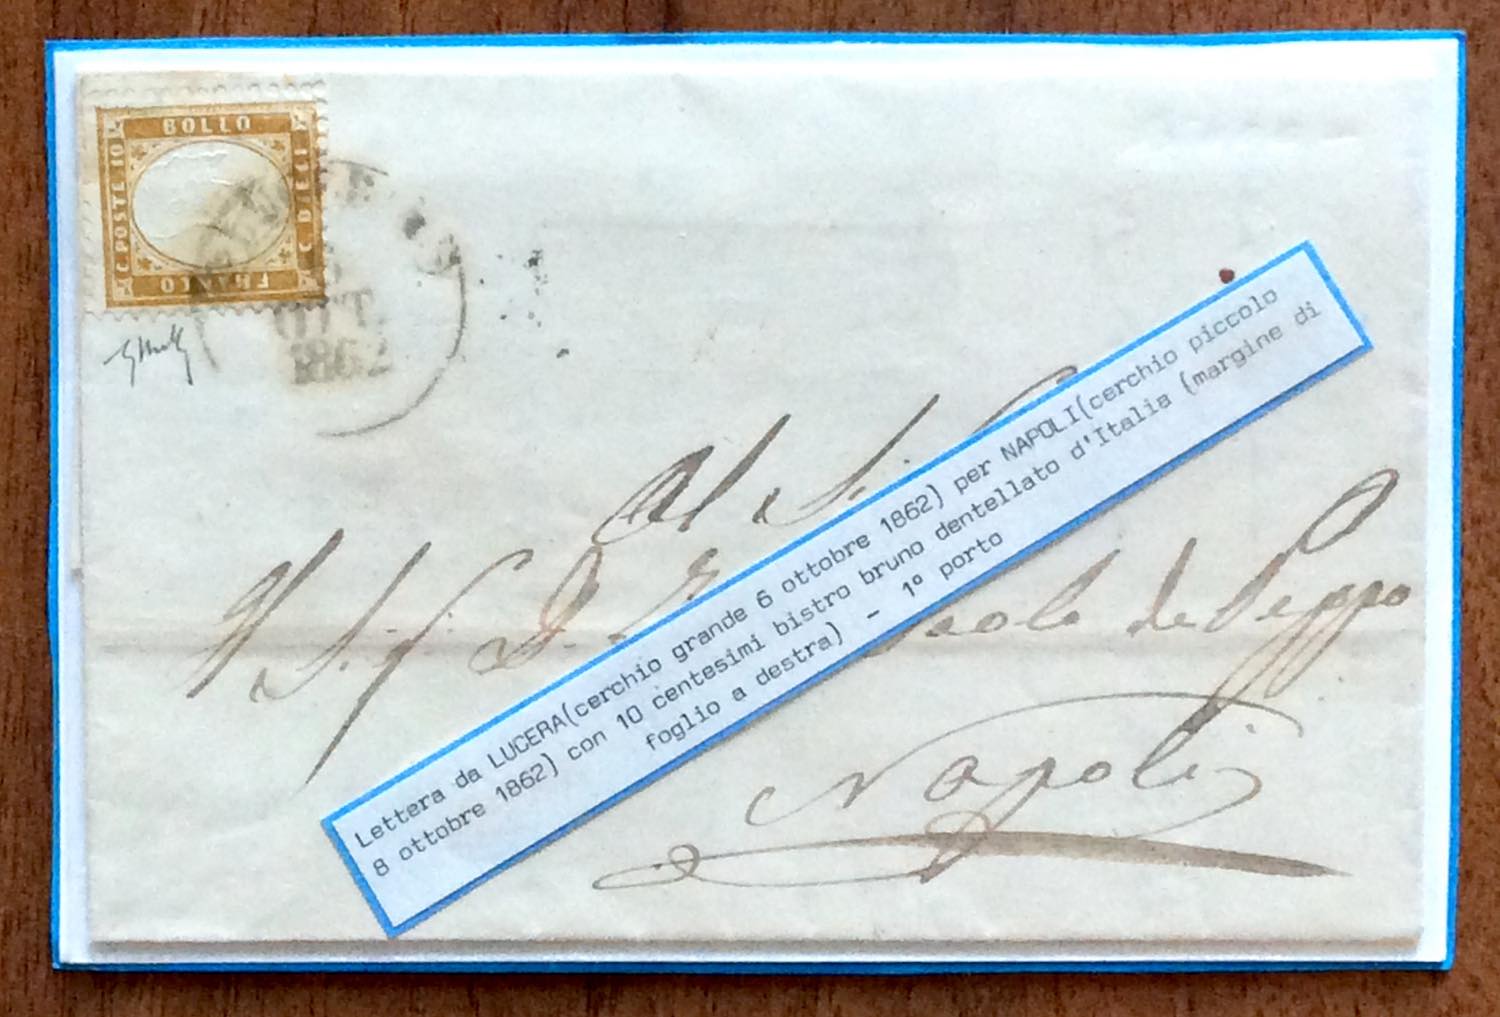 BOLLO
C. POSTE 10
C DIECI
FRANCO
OTT.
1862
Al
Sig. D.
Paolo de Peppo
Napoli
Lettera da LUCERA(cerchio grande 6 ottobre 1862) per NAPOLI(cerchio piccolo
8 ottobre 1862) con 10 centesimi bistro bruno dentellato d'Italia (margine di
foglio a destra) - 1º porto